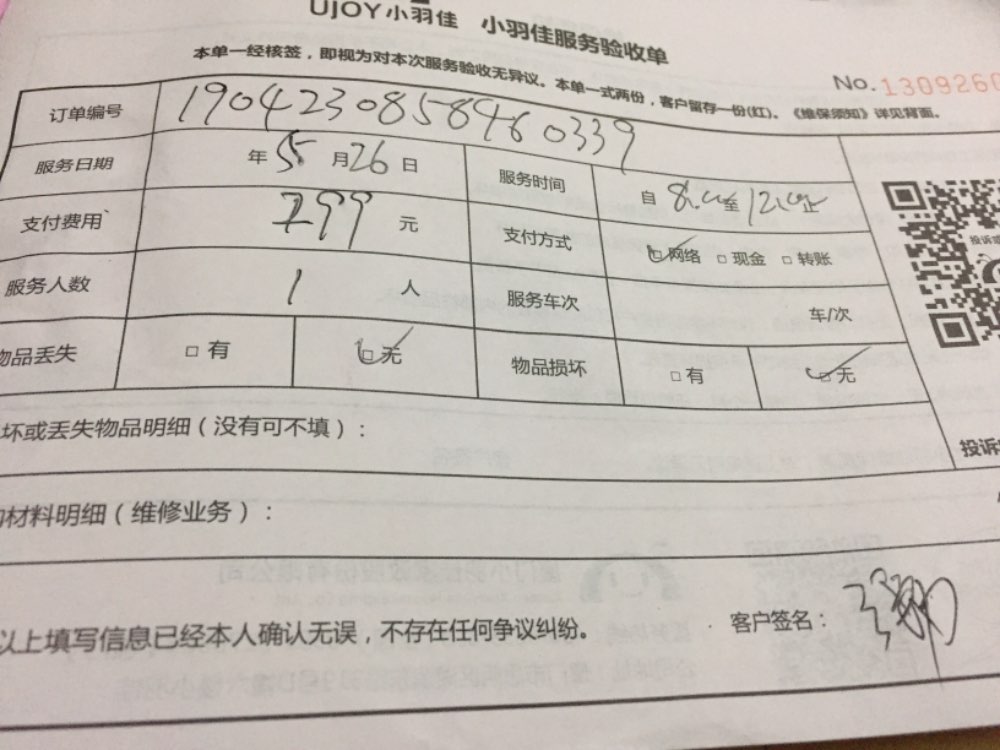 UJOY小羽佳 小羽佳服务验收单
本单一经核签，即视为对本次服务验收无异议。本单一式两份，客户留存一份(红)。《维保须知》详见背面。
No.1309260
订单编号 1904230858460339
服务日期 年 5 月 26 日 服务时间 自 8:00 至 12:00 止
支付费用 299 元 支付方式 □网络 □现金 □转账
服务人数 1 人 服务车次 车/次
物品丢失 □有 □无 物品损坏 □有 □无
坏或丢失物品明细（没有可不填）：
投诉
材料明细（维修业务）：
以上填写信息已经本人确认无误，不存在任何争议纠纷。
客户签名：